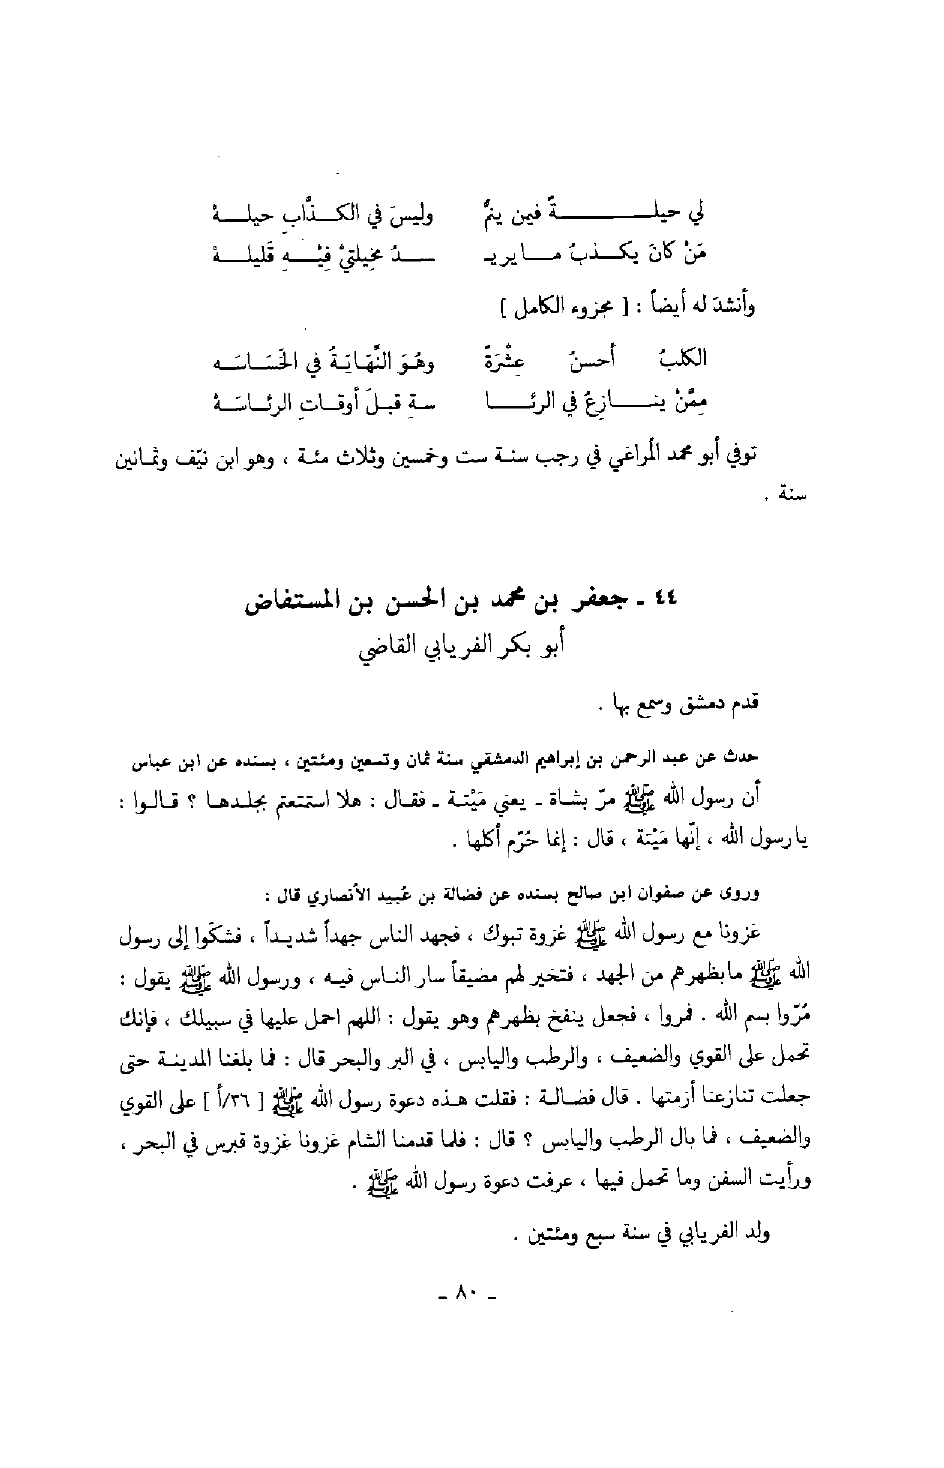 لي حيلـــــــةٌ فيمن ينمُّ    وليسَ في الكـذَّابِ حيلـة
مَنْ كانَ يكـذبُ مـا يريـ    ـــدُ فحيلتيْ فيْـهِ قليلـة
وأنشدَ له أيضاً : [ مجزوء الكامل ]
الكلبُ أحسنُ عِشْرَةً    وهُوَ النِّهايَةُ في الخَسَاسَه
مِمَّنْ ينـازِعُ في الرئـا    سةِ قبلَ أوقاتِ الرئاسَةْ
توفي أبو محمد المراغي في رجب سنة ست وخمسين وثلاث مئة ، وهو ابن نيّف وثمانين
سنة .
٤٤ ـ جعفر بن محمد بن الحسن بن المستفاض
أبو بكر الفريابي القاضي
قدم دمشق وسمع بها .
حدث عن عبد الرحمن بن إبراهيم الدمشقي سنة ثمان وتسعين ومئتين ، بسنده عن ابن عباس
أن رسول الله ﷺ مرّ بشاة ـ يعني مَيْتة ـ فقال : هلا استمتعتم بجلدها ؟ قالوا :
يا رسول الله ، إنّها مَيْتة ، قال : إنما حُرّم أكلها .
وروى عن صفوان ابن صالح بسنده عن فضالة بن عُبيد الأنصاري قال :
غزونا مع رسول الله ﷺ غزوة تبوك ، فجهد الناس جهداً شديداً ، فشكَوا إلى رسول
الله ﷺ مابظهرهم من الجهد ، فتخير لهم مضيقاً سار الناس فيه ، ورسول الله ﷺ يقول :
مُرّوا بسم الله . فمروا ، فجعل ينفخ بظهرهم وهو يقول : اللهم احمل عليها في سبيلك ، فإنك
تحمل على القوي والضعيف ، والرطب واليابس ، في البر والبحر قال : فما بلغنا المدينة حتى
جعلت تنازعنا أزمتها . قال فضالة : فقلت هذه دعوة رسول الله ﷺ [ ٣٦/أ ] على القوي
والضعيف ، فما بال الرطب واليابس ؟ قال : فلما قدمنا الشام غزونا غزوة قبرس في البحر ،
ورأيت السفن وما تحمل فيها ، عرفت دعوة رسول الله ﷺ .
ولد الفريابي في سنة سبع ومئتين .
ـ ٨٠ ـ